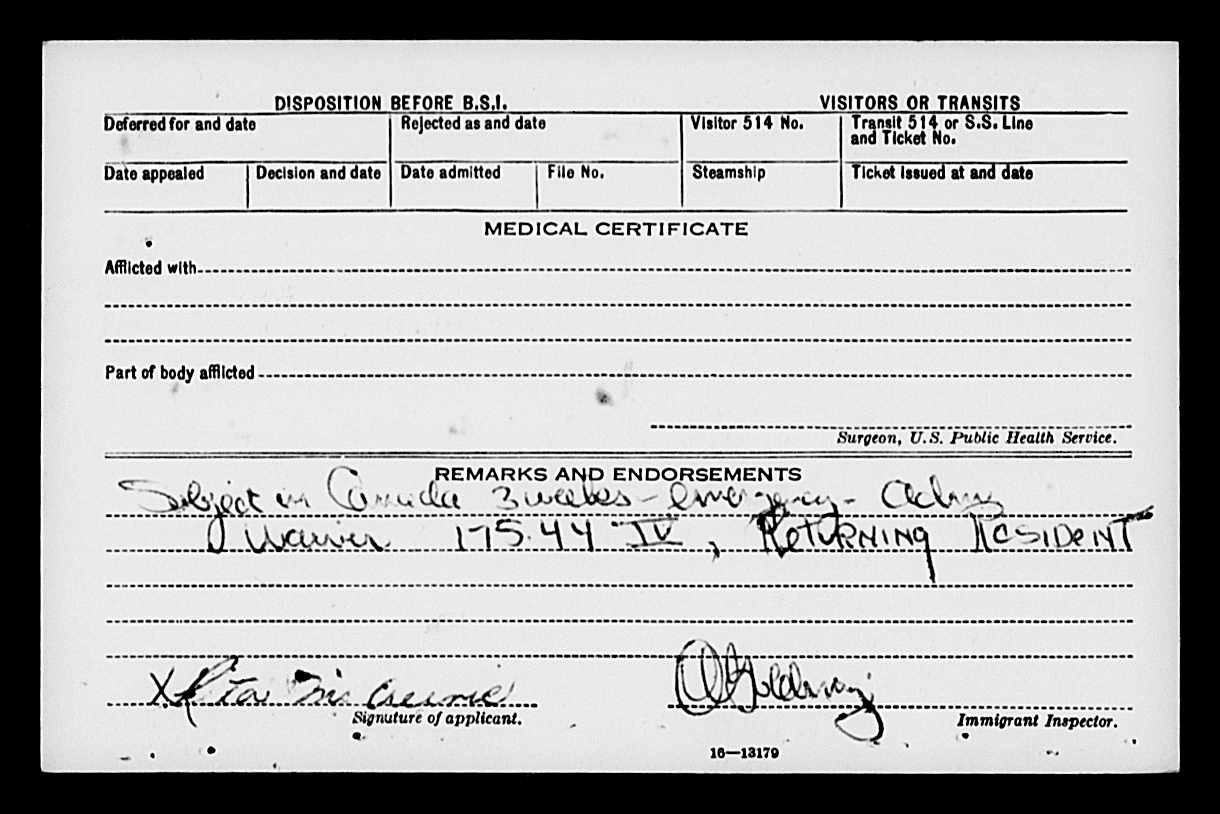 DISPOSITION BEFORE B.S.I. VISITORS OR TRANSITS
Deferred for and date Rejected as and date Visitor 514 No. Transit 514 or S.S. Line
and Ticket No.
Date appealed Decision and date Date admitted File No. Steamship Ticket issued at and date
MEDICAL CERTIFICATE
Afflicted with
Part of body afflicted
Surgeon, U.S. Public Health Service.
REMARKS AND ENDORSEMENTS
Subject in Canada 3 weeks - emergency -
Waiver 175.44 IV, Returning Resident
X Rita
Signature of applicant. Immigrant Inspector.
16—13179